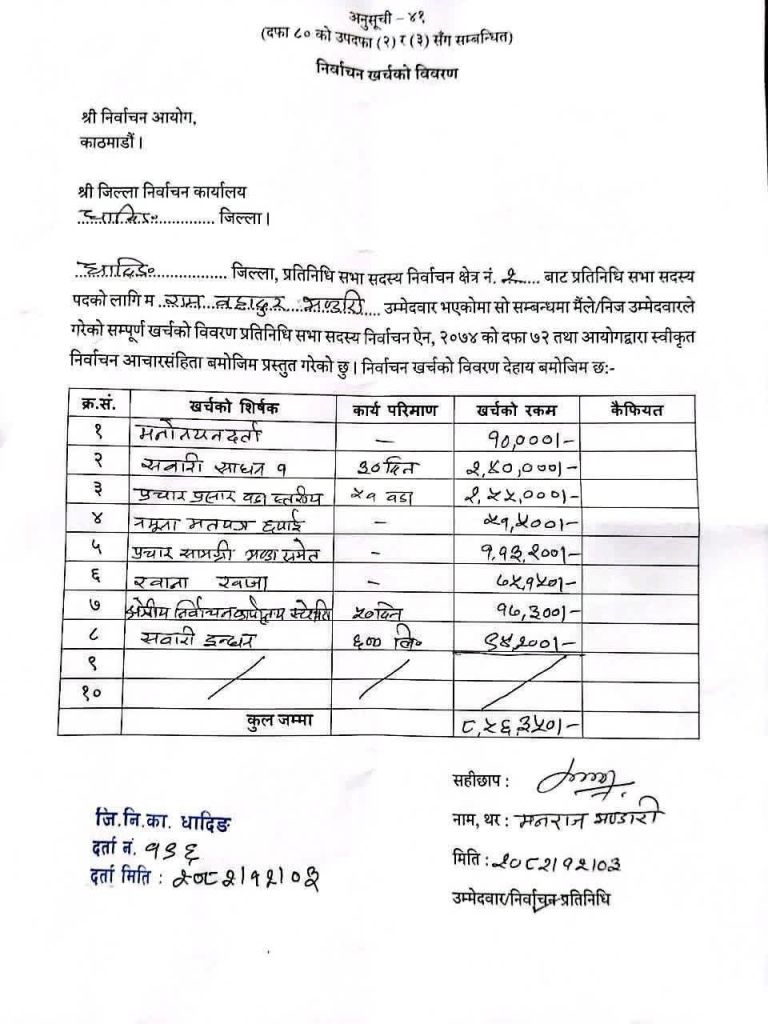 अनुसूची – ४१
(दफा ८० को उपदफा (२) र (३) सँग सम्बन्धित)
निर्वाचन खर्चको विवरण
श्री निर्वाचन आयोग,
काठमाडौं।
श्री जिल्ला निर्वाचन कार्यालय
धादिङ जिल्ला।
धादिङ जिल्ला, प्रतिनिधि सभा सदस्य निर्वाचन क्षेत्र नं. २ बाट प्रतिनिधि सभा सदस्य
पदको लागि म राम बहादुर भण्डारी उम्मेदवार भएकोमा सो सम्बन्धमा मैंले/निज उम्मेदवारले
गरेको सम्पूर्ण खर्चको विवरण प्रतिनिधि सभा सदस्य निर्वाचन ऐन, २०७४ को दफा ७२ तथा आयोगद्वारा स्वीकृत
निर्वाचन आचारसंहिता बमोजिम प्रस्तुत गरेको छु। निर्वाचन खर्चको विवरण देहाय बमोजिम छ:-
क्र.सं. खर्चको शिर्षक कार्य परिमाण खर्चको रकम कैफियत
१ मनोनयन दर्ता – १०,०००।–
२ सवारी साधन १ ३० दिन २,४०,०००।–
३ प्रचार प्रसार वडा स्तरीय ५१ वडा २,५५,०००।–
४ नमूना मतपत्र छपाई – ५१,५००।–
५ प्रचार सामग्री झण्डा समेत – १,१३,२००।–
६ खाना खाजा – ७५,१५०।–
७ क्षेत्रीय निर्वाचन कार्यालय २० दिन १७,३००।–
८ सवारी इन्धन ६०० लि० ९४,२००।–
९
१०
कुल जम्मा ८,५६,३५०।–
सहीछाप :
नाम, थर : मनराज भण्डारी
मिति : २०८२।१२।०३
उम्मेदवार/निर्वाचन प्रतिनिधि
जि.नि.का. धादिङ
दर्ता नं. १३६
दर्ता मिति : २०८२।१२।०३